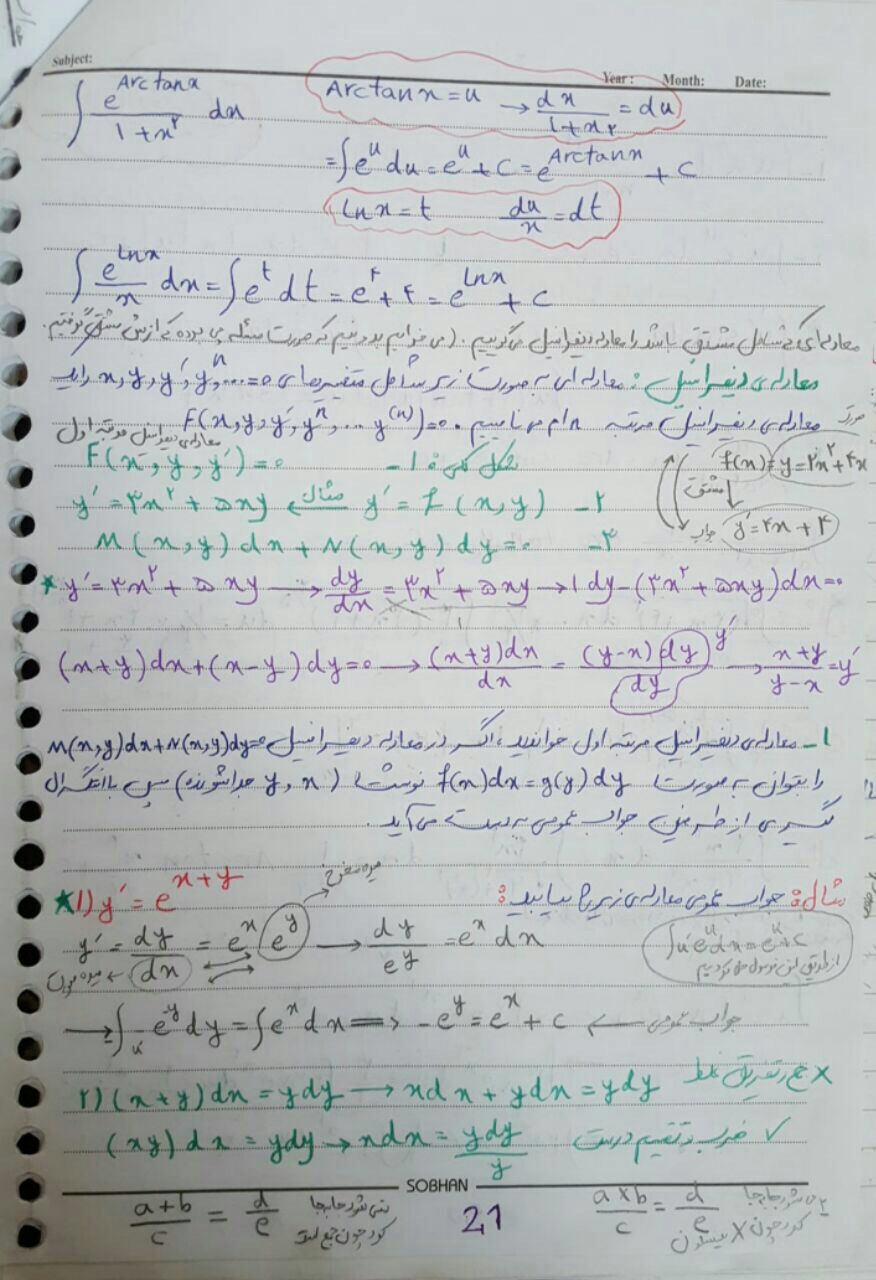 Subject:
Year: Month: Date:
∫ e^Arctanx / 1+x² dx    Arctanx = u → dx / 1+x² = du
= ∫e^u du = e^u + c = e^Arctanx + c
Lnx = t    du/x = dt
∫ e^Lnx / x dx = ∫e^t dt = e^t + c = e^Lnx + c
معادله‌ای که شامل مشتق باشد را معادله دیفرانسیل می‌گوییم. (می‌خواهیم بدونیم که صورت مسئله چی بوده که ازش مشتق گرفتیم.
معادله‌ی دیفرانسیل: معادله‌ای به صورت زیر شامل متغیرهای x, y, y′, y^n, ... = ۰ را یک
معادله‌ی دیفرانسیل مرتبه n ام می‌نامیم. F(x, y, y′, y^n, ... y^(n)) = ۰
معادله‌ی دیفرانسیل مرتبه اول
شکل کلی: ۱- F(x, y, y′) = ۰
f(x) = y = ۲x² + ۴x
۲- y′ = f(x, y) مثال y′ = ۳x² + ۵xy
مشتق
جواب y′ = ۴x + ۴
۳- M(x, y)dx + N(x, y)dy = ۰
* y′ = ۳x² + ۵xy → dy/dx = ۳x² + ۵xy / ۱ → 1 dy - (۳x² + ۵xy)dx = ۰
(x+y)dx + (x-y)dy = ۰ → (x+y)dx / dx = (y-x)dy / dy y′ → x+y / y-x = y′
۱- معادله‌ی دیفرانسیل مرتبه اول خوانید، اگر در معادله دیفرانسیل M(x,y)dx + N(x,y)dy = ۰
را بتوان به صورت f(x)dx = g(y)dy نوشت (x, y جداشونده) سپس با انتگرال
گیری از طرفین جواب عمومی به دست می‌آید.
مثال: جواب عمومی معادله‌ی زیر را بیابید:
*۱) y′ = e^x+y
y′ = dy/dx = e^x e^y → dy / e^y = e^x dx
∫u′e^u dx = e^u + c
از طریق این فرمول حل کردیم
→ -∫ -e^-y dy = ∫e^x dx ⟹ -e^y = e^x + c ← جواب عمومی
۲) (x+y)dx = ydy → xdx + ydx = ydy × جمع و تفریق غلط
(xy)dx = ydy → xdx = ydy / y ✓ ضرب و تقسیم درست
SOBHAN
a+b / c = d / e نمی‌شود جابجا کرد چون جمع است
21
a×b / c = d / e می‌شود جابجا کرد چون ×